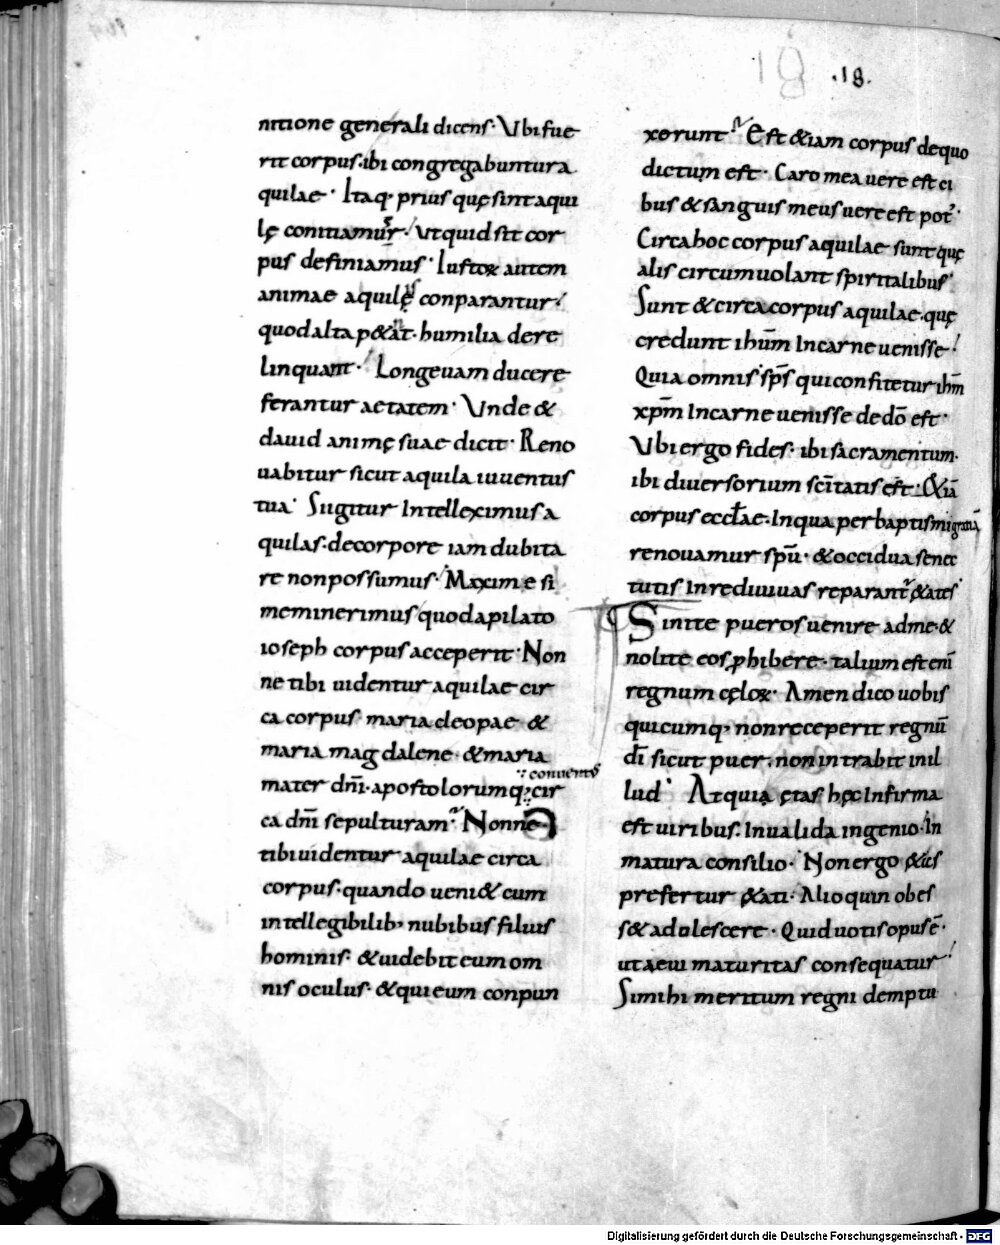 .18.
nitione generali dicens· Vbi fue
rit corpus· ibi congregabuntur a
quilae· Itaq· prius quę sint aqui
lę coniciamur· Vt quid sit cor
pus definiamus· Iustoꝝ autem
animae aquilę conparantur·
quod alta p&at· humilia dere
linquant· Longeuam ducere
ferantur aetatem· Vnde &
dauid animę suae dicit· Reno
uabitur sicut aquila iuuentus
tua· Si igitur Intelleximus a
quilas· de corpore iam dubita
re non possumus· Maxime si
meminerimus quod a pilato
ioseph corpus acceperit· Non
ne tibi uidentur aquilae cir
ca corpus maria cleopae &
maria magdalene· & maria
mater dn̄i· apostolorumq; conuentus cir
ca dn̄i sepulturam· Nonne
tibi uidentur aquilae circa
corpus· quando ueni& cum
intellegibilib; nubibus filius
hominis· & uidebit eum om
nis oculus· & qui eum conpun
xerunt· Est &iam corpus de quo
dictum est· Caro mea uere est ci
bus & sanguis meus uere est pot·
Circa hoc corpus aquilae sunt quę
alis circumuolant spiritalibus·
Sunt & circa corpus aquilae· quę
credunt ih̄m In carne uenisse·
Quia omnis sp̄s qui confitetur ih̄m
xp̄m In carne uenisse de dō est·
Vbi ergo fides· ibi sacramentum·
ibi diuersorium scītatis est· &iā
corpus eccl̄ae· In qua per baptismi gratiā
renouamur spū· & occidua senec
tutis In rediuiuas reparant &ates
Sinite pueros uenire ad me· &
nolite eos phibere· talium est enī
regnum cęloꝝ· Amen dico uobis
quicumq; non receperit regnū
dī sicut puer· non intrabit in il
lud· At quia ętas hęc Infirma
est uiribus· Inualida ingenio· In
matura consilio· Non ergo &as
prefertur &ati· Alioquin obes
s& adolescere· Quid uotis opus ē·
ut aeui maturitas consequatur
Si mihi meritum regni demptu
Digitalisierung gefördert durch die Deutsche Forschungsgemeinschaft - DFG